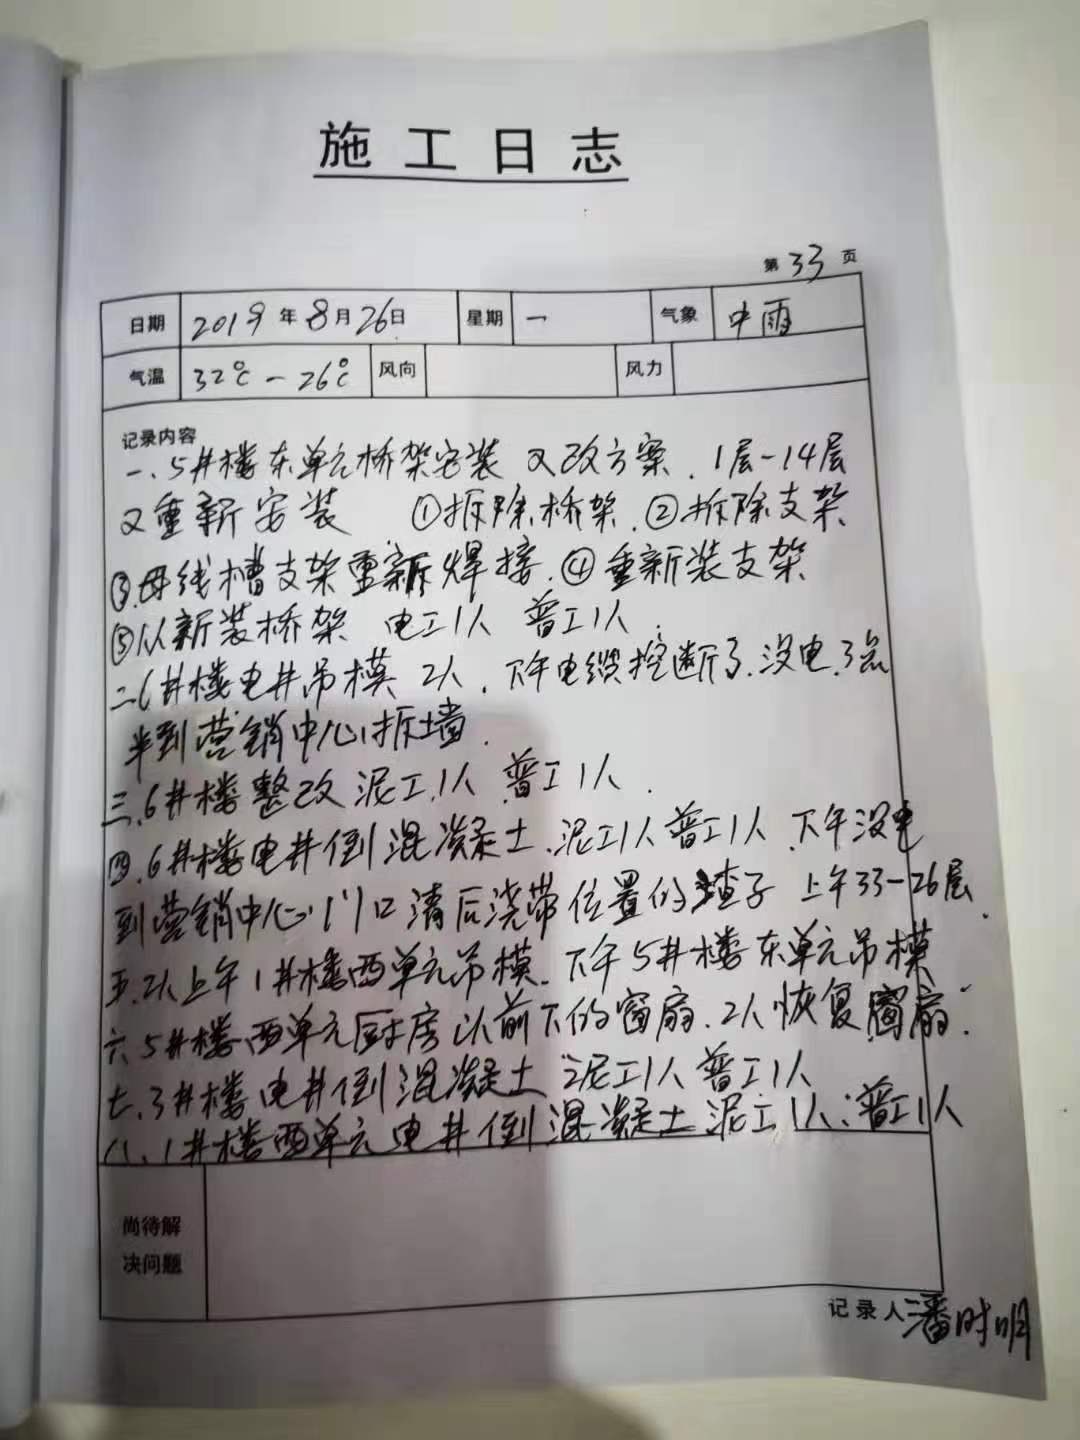 施工日志
第33页
日期 2019年8月26日 星期 一 气象 中雨
气温 32℃-26℃ 风向 风力
记录内容
一、5#楼东单元桥架安装 又改方案、1层-14层
又重新安装 ①拆除桥架、②拆除支架
③母线槽支架重新焊接、④重新装支架
⑤从新装桥架 电工1人 普工1人.
二、6#楼电井吊模 2人、下午电缆挖断了、没电、3点
半到营销中心拆墙.
三、6#楼整改 泥工1人 普工1人.
四、6#楼电井倒混凝土、泥工1人 普工1人、下午没电
到营销中心门口清后浇带位置的渣子 上午33-26层、
五、2人上午1#楼西单元吊模、下午5#楼东单元吊模
六、5#楼西单元厨房以前下的窗扇、2人恢复窗扇.
七、3#楼电井倒混凝土 泥工1人 普工1人
八、1#楼西单元电井倒混凝土 泥工1人、普工1人
尚待解
决问题
记录人 潘时明